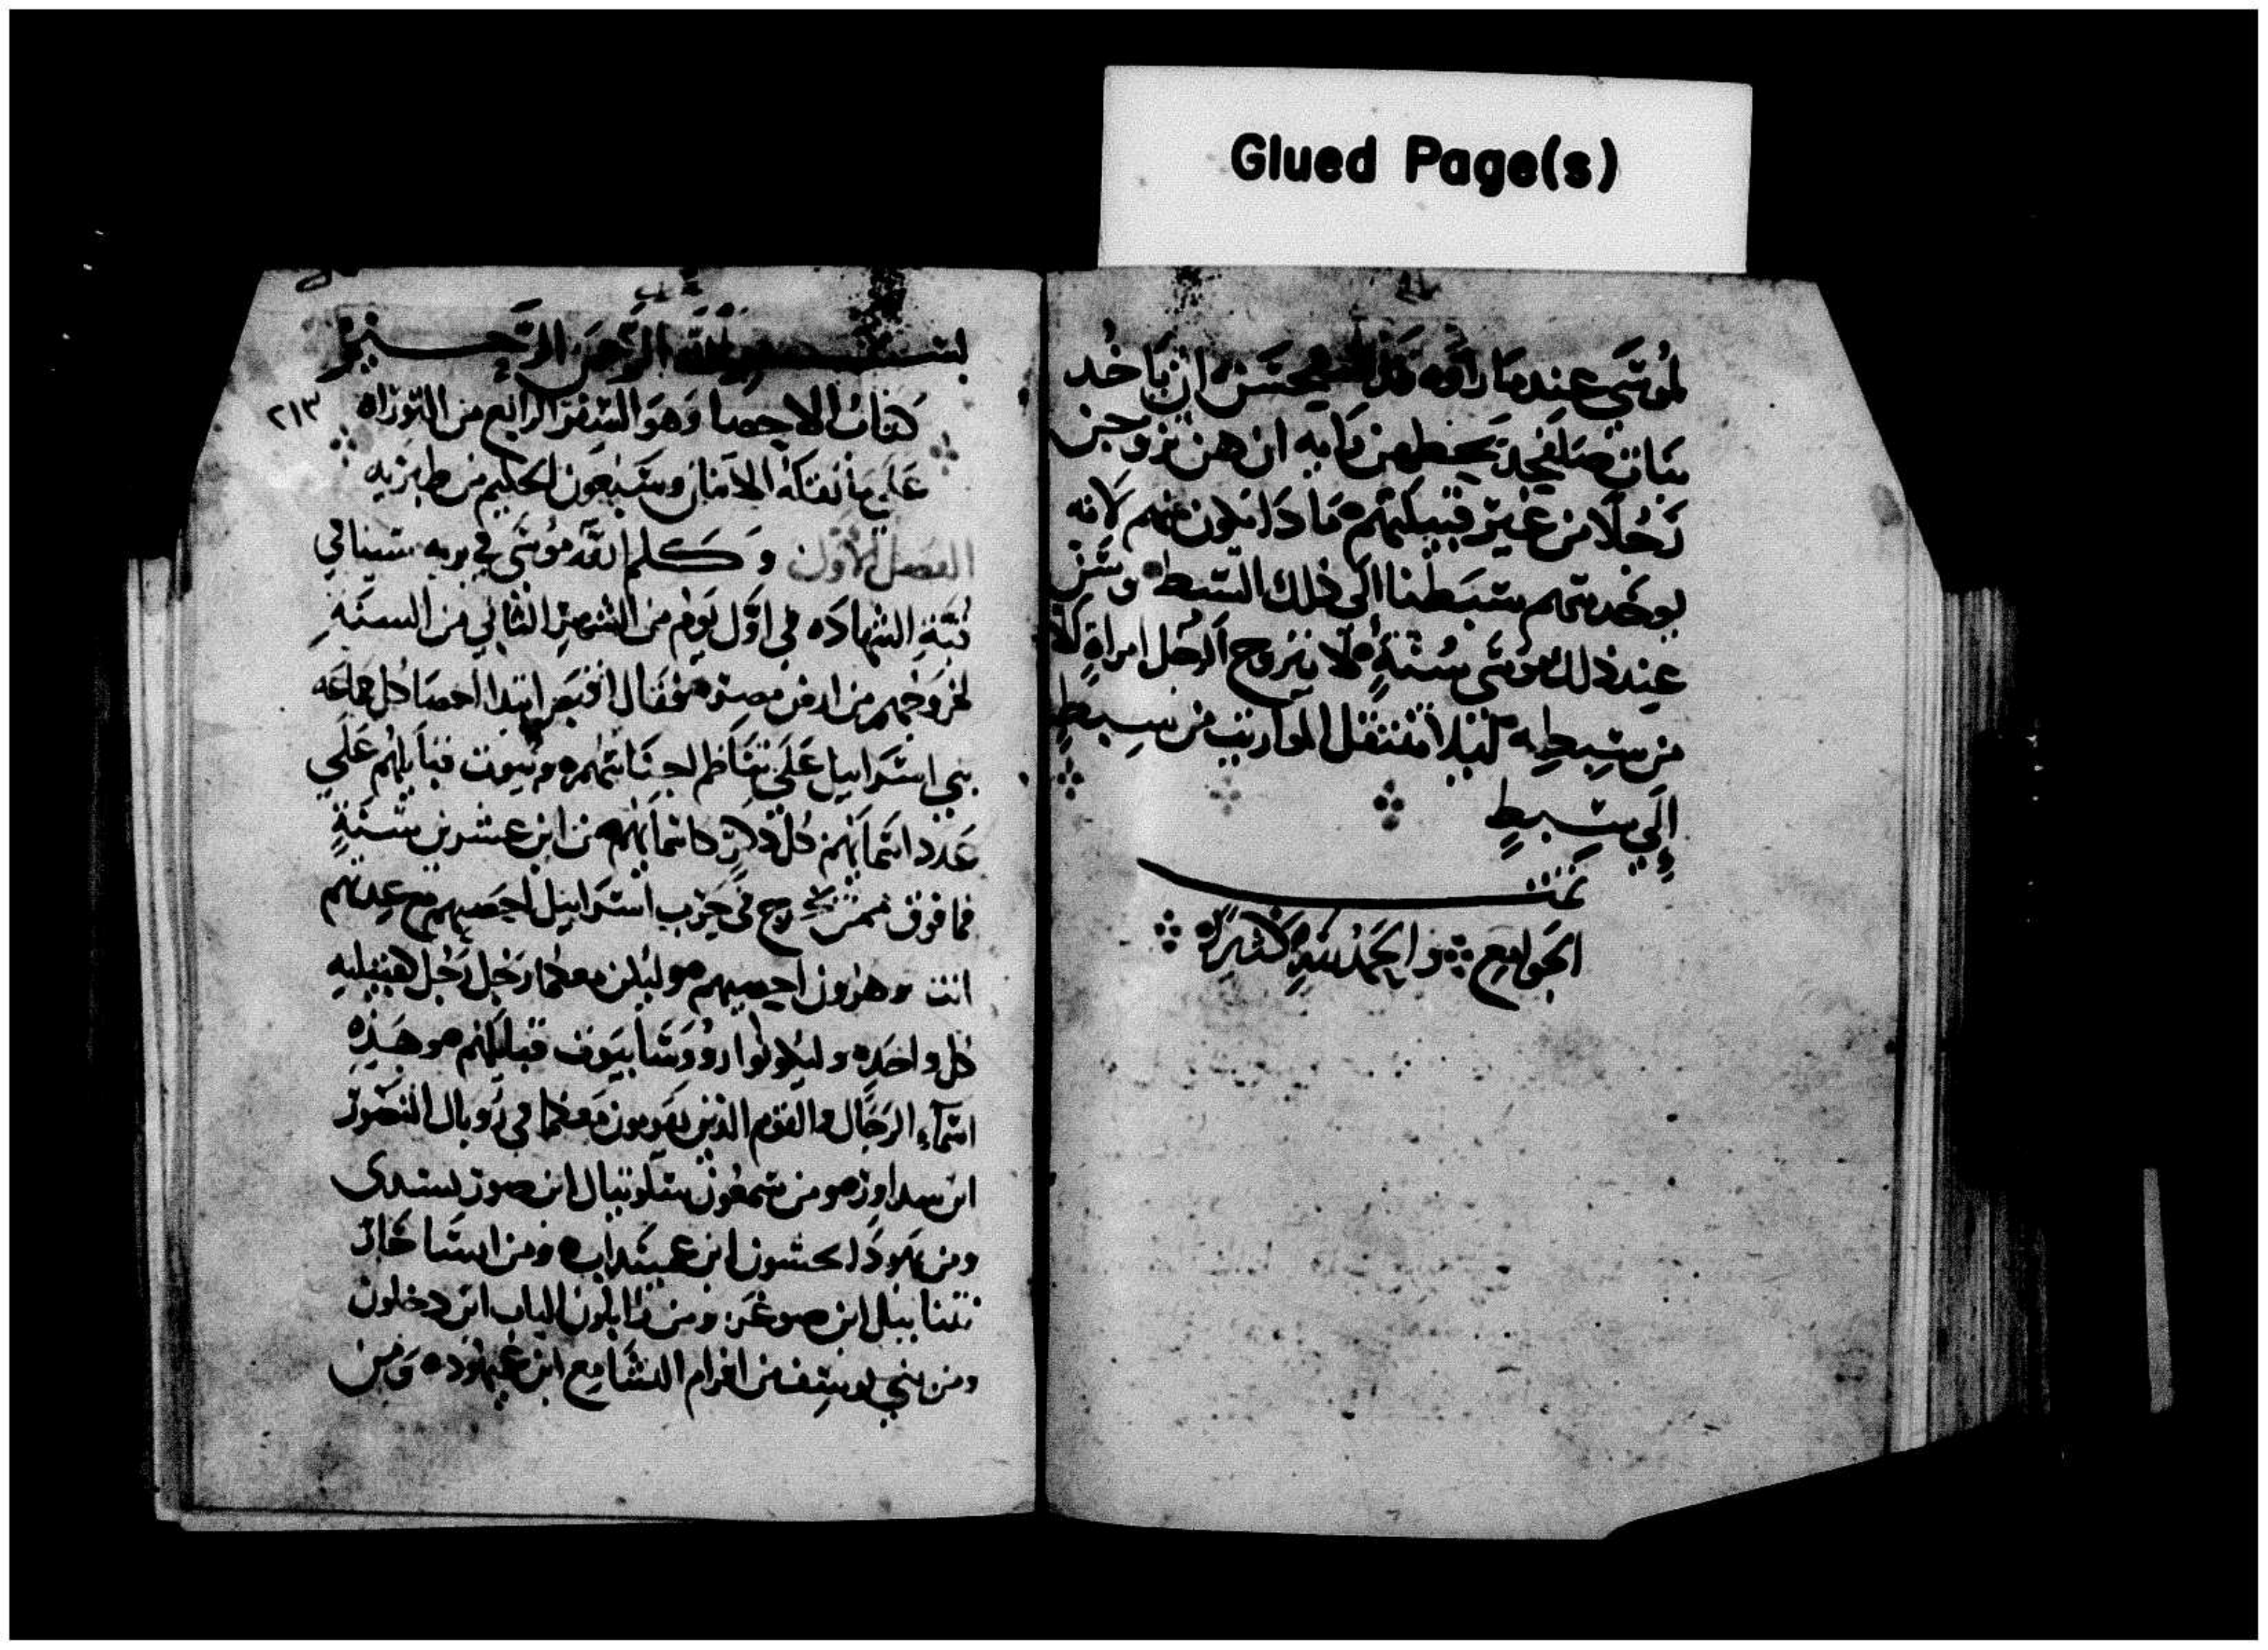 Glued Page(s)
لموسى عندما راوه يحسن ان ياخد
بنات صلفحد ان هن تزوجن
رجلا من غير قبيلتهم ما دامون منهم لانه
يوخد سهم سبطنا الى ذلك السبط وسن
عند ذلك موسى سنة لا يتزوج الرجل امراة الا
من سبطه لئلا تنتقل المواريث من سبط
إلي سبطٍ
تمت
الجوامع والحمد لله كثيرا
بسم الله الرحمن الرحيم
كتاب الاحصا وهو السفر الرابع من التوراه
٢١٣
على ما نقله الاثنان وسبعون الحكيم من طبريه
الفصل الاول وكلم الله موسى في بريه سينا في
قبة الشهاده في اول يوم من الشهر الثاني من السنة
لخروجهم من ارض مصر فقال ابتدا احصا كل جماعه
بني اسراييل على اجناسهم وبيوت قبايلهم على
عدد اسمايهم كل ذكر من ابن عشرين سنةٍ
فما فوق ممن يخرج في حرب اسراييل احصيهم مع عدتهم
انت وهرون احصيهم وليكن معكما رجل رجل لقبيله
كل واحده وليكونوا روؤسا بيوت قبايلهم وهذه
اسماء الرجال والقوم الذين يقومون معكما في روبال اليصور
ابن سداور ومن سمعون سلونيال ابن صورسدى
ومن يهودا نحشون ابن عميناداب ومن ايساخار
نتنابيل ابن صوغر ومن زابلون الياب ابن حلون
ومن بني يوسف من افرام اليشامع ابن عميهود ومن